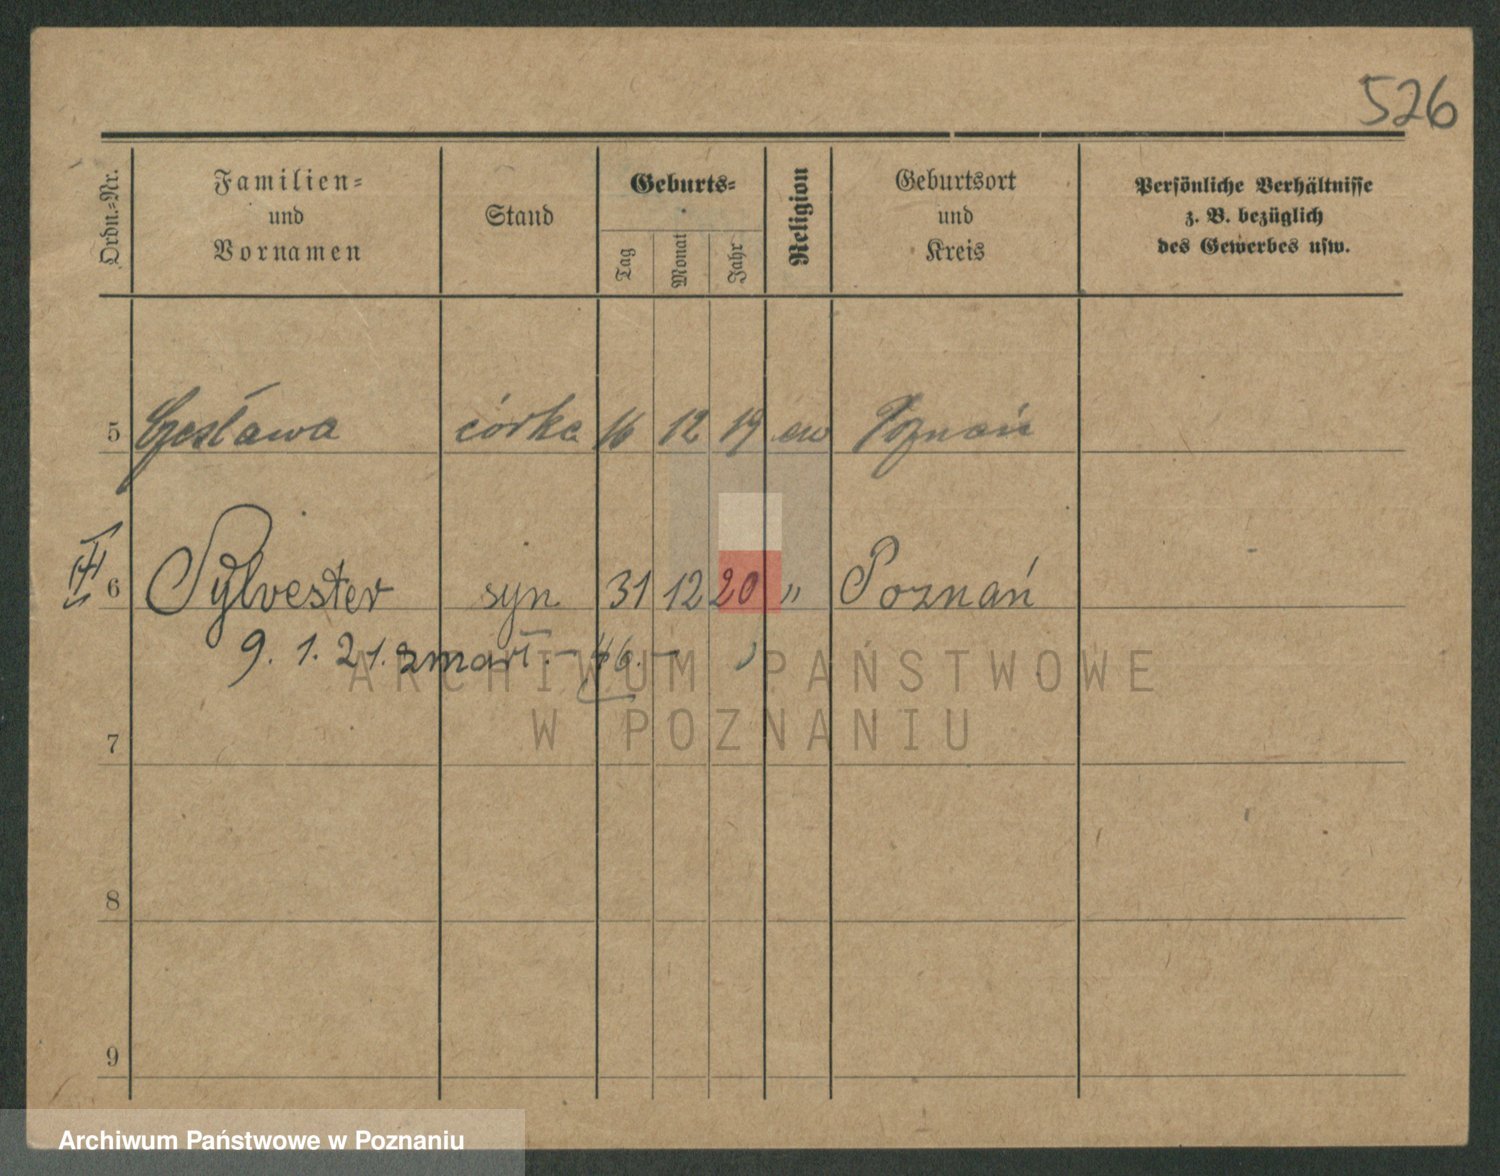 526
Ordn.-Nr.
Familien-
und
Vornamen
Stand
Geburts-
Tag
Monat
Jahr
Religion
Geburtsort
und
Kreis
Persönliche Verhältnisse
z. B. bezüglich
des Gewerbes usw.
5 Czesława córka 16 12 19 Poznań
6 Sylvester syn 31 12 20 " Poznań
9. 1. 21. zmarł. - 46. -
ARCHIWUM PAŃSTWOWE
W POZNANIU
7
8
9
Archiwum Państwowe w Poznaniu